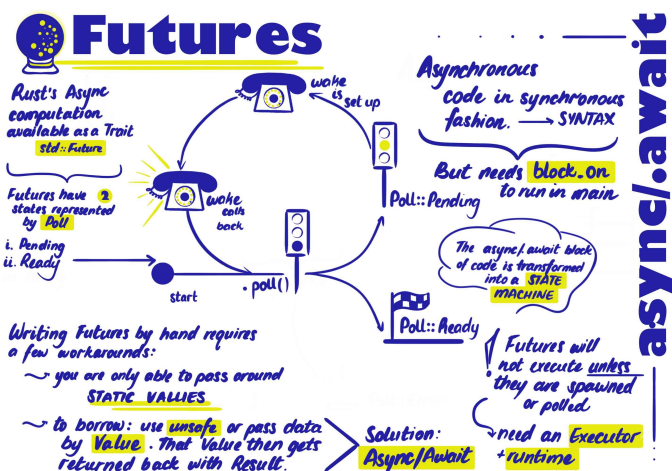 Futures
Rust's Async
computation
available as a Trait
std::Future
Futures have 2
states represented
by Poll
i. Pending
ii. Ready
start
.poll()
wake
is
set up
wake
calls
back
Poll::Pending
Poll::Ready
Asynchronous
code in synchronous
fashion. → SYNTAX
But needs block_on
to run in main
The async/.await block
of code is transformed
into a STATE
MACHINE
! Futures will
not execute unless
they are spawned
or polled
need an Executor
+runtime
Writing Futures by hand requires
a few workarounds:
~ you are only able to pass around
STATIC VALUES
~ to borrow: use unsafe or pass data
by Value. That Value then gets
returned back with Result.
Solution:
Async/Await
async/.await